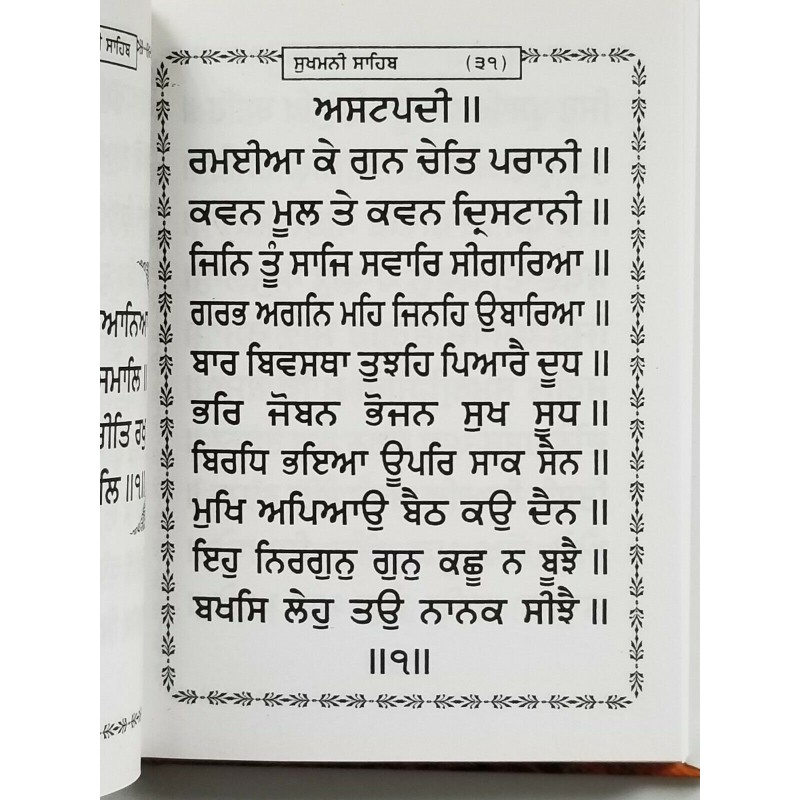 ੀ ਸਾਹਿਬ
ਆਨਿਆ
ਜਮਾਲਿ ॥
ਰੀਤਿ ਰਖੁ
ਲਿ ॥੧॥
ਸੁਖਮਨੀ ਸਾਹਿਬ (੩੧)
ਅਸਟਪਦੀ ॥
ਰਮਈਆ ਕੇ ਗੁਨ ਚੇਤਿ ਪਰਾਨੀ ॥
ਕਵਨ ਮੂਲ ਤੇ ਕਵਨ ਦ੍ਰਿਸਟਾਨੀ ॥
ਜਿਨਿ ਤੂੰ ਸਾਜਿ ਸਵਾਰਿ ਸੀਗਾਰਿਆ ॥
ਗਰਭ ਅਗਨਿ ਮਹਿ ਜਿਨਹਿ ਉਬਾਰਿਆ ॥
ਬਾਰ ਬਿਵਸਥਾ ਤੁਝਹਿ ਪਿਆਰੈ ਦੂਧ ॥
ਭਰਿ ਜੋਬਨ ਭੋਜਨ ਸੁਖ ਸੂਧ ॥
ਬਿਰਧਿ ਭਇਆ ਊਪਰਿ ਸਾਕ ਸੈਨ ॥
ਮੁਖਿ ਅਪਿਆਉ ਬੈਠ ਕਉ ਦੈਨ ॥
ਇਹੁ ਨਿਰਗੁਨੁ ਗੁਨੁ ਕਛੂ ਨ ਬੂਝੈ ॥
ਬਖਸਿ ਲੇਹੁ ਤਉ ਨਾਨਕ ਸੀਝੈ ॥
॥੧॥